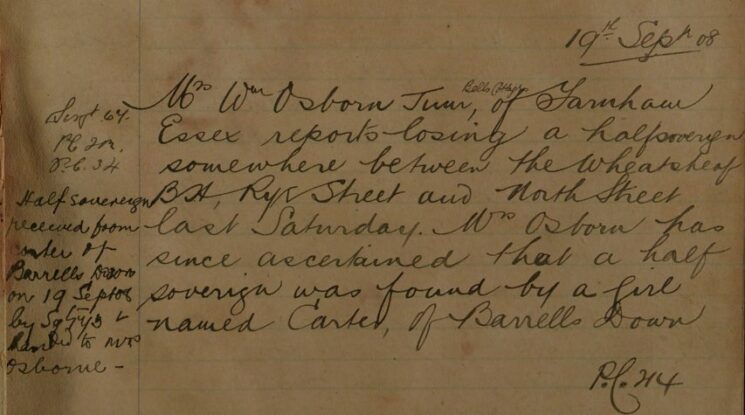 19th Sept 08
Mrs Wm Osborn Junr, of Farnham
Essex reports losing a halfsovereign
somewhere between the Wheatsheaf
B.H, Rye Street and North Street
last Saturday. Mrs Osborn has
since ascertained that a half
soverign was found by a girl
named Carter, of Barrells Down
P.C. 214
Sergt 67.
P.C.
P.C. 34
Half sovereign
received from
carter of
Barrells Down
on 19 Sept 08
by Sgt
to Mrs
Osborne -